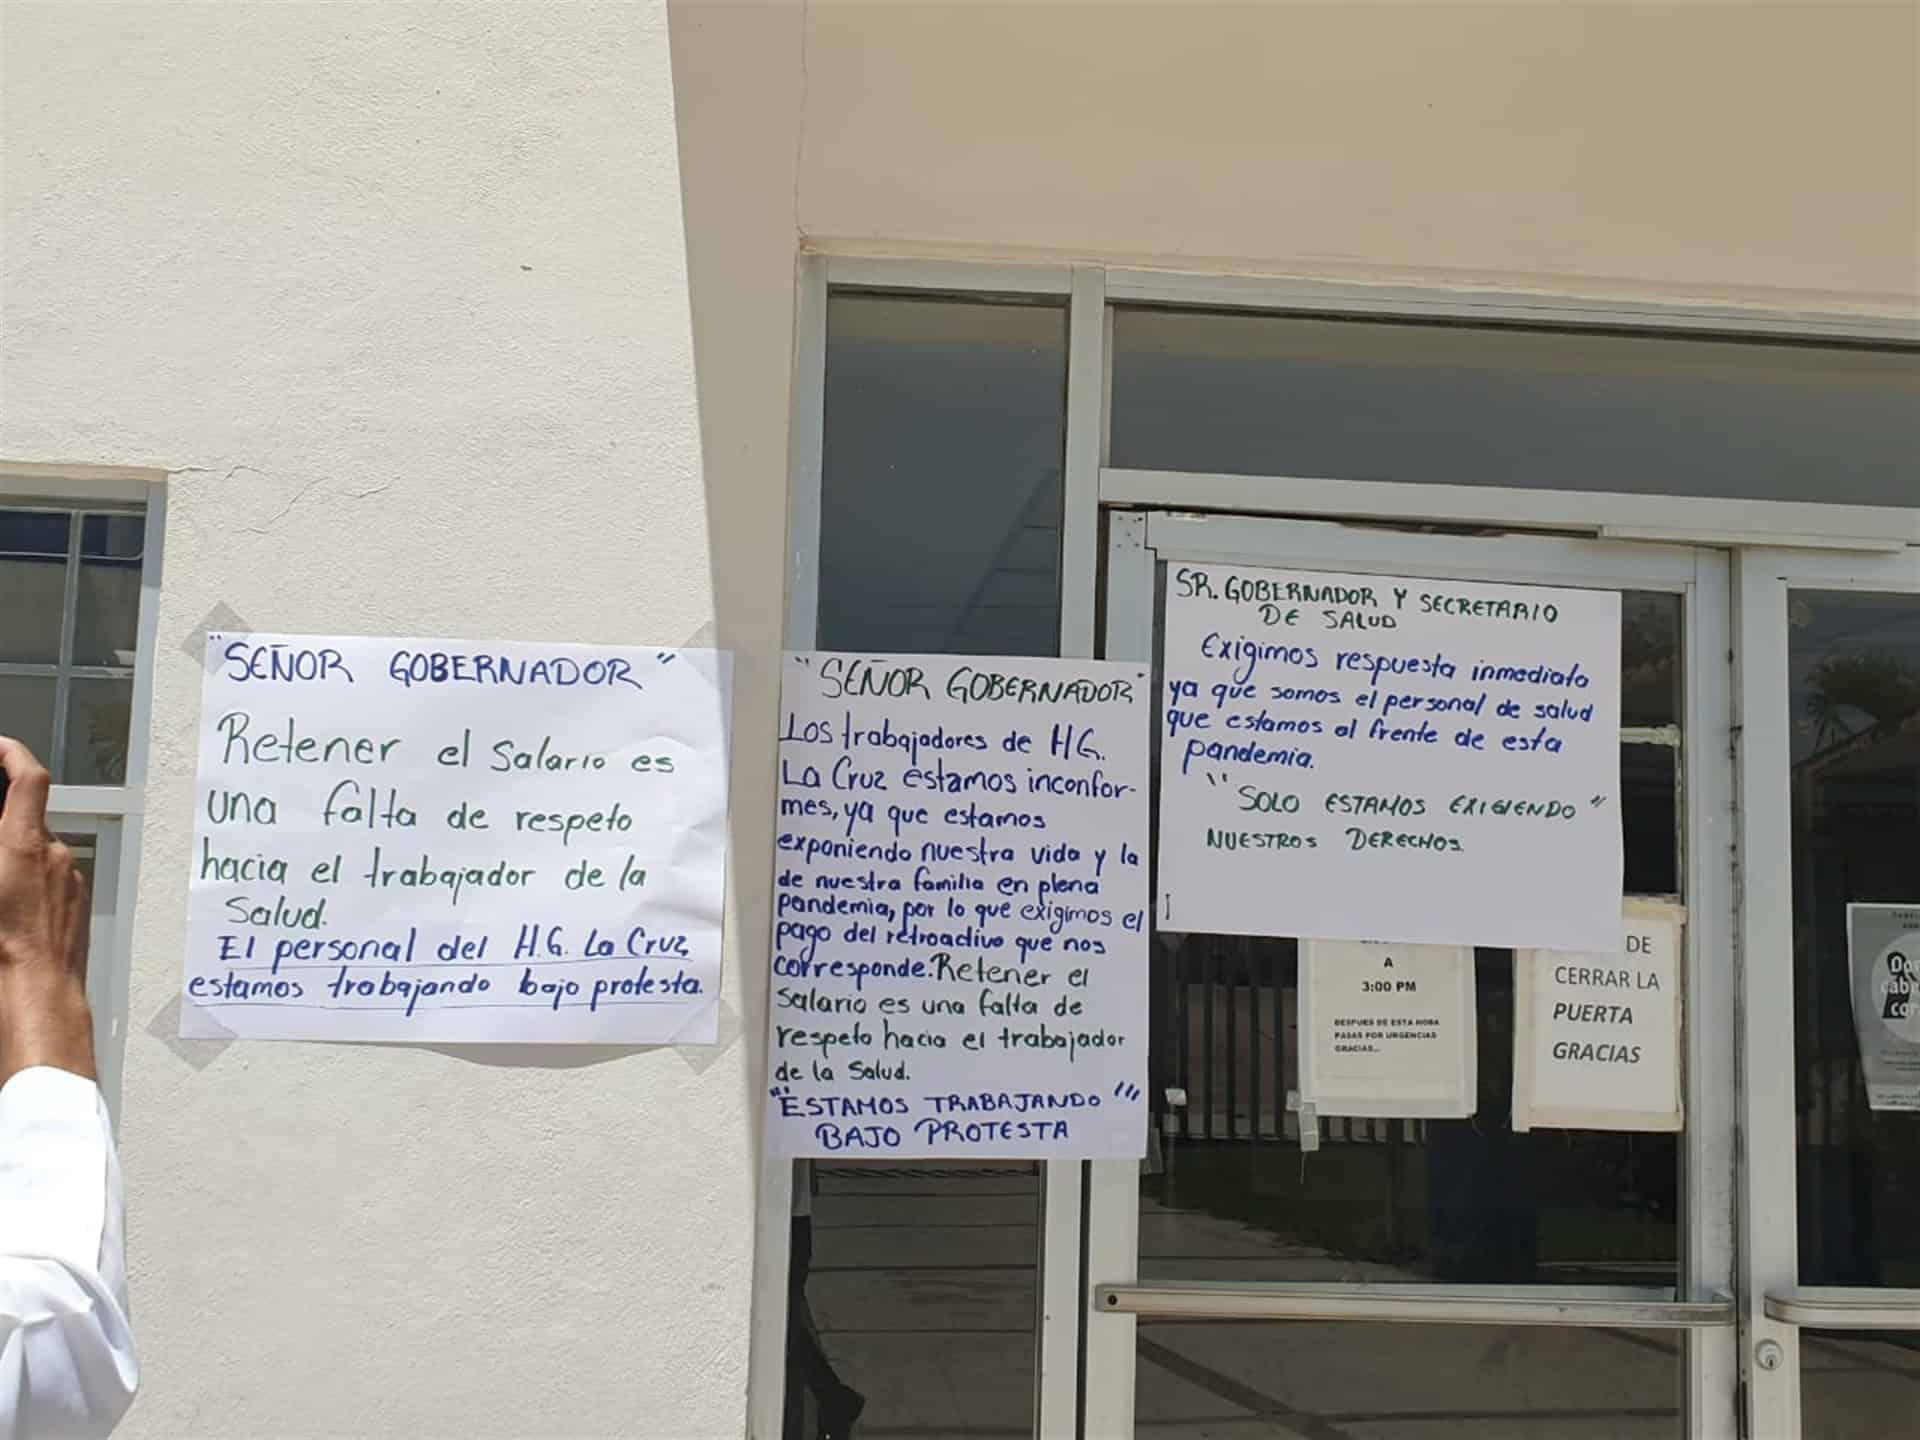 "SEÑOR GOBERNADOR"
Retener el salario es
una falta de respeto
hacia el trabajador de la
Salud.
El personal del H.G. La Cruz
estamos trabajando bajo protesta.
"SEÑOR GOBERNADOR"
Los trabajadores de HG.
La Cruz estamos inconfor-
mes, ya que estamos
exponiendo nuestra vida y la
de nuestra familia en plena
pandemia, por lo que exigimos el
pago del retroactivo que nos
corresponde. Retener el
salario es una falta de
respeto hacia el trabajador
de la Salud.
"ESTAMOS TRABAJANDO"
BAJO PROTESTA
SR. GOBERNADOR Y SECRETARIO
DE SALUD
Exigimos respuesta inmediata
ya que somos el personal de salud
que estamos al frente de esta
pandemia.
"SOLO ESTAMOS EXIGIENDO"
NUESTROS DERECHOS.
A
3:00 PM
DESPUES DE ESTA HORA
PASAS POR URGENCIAS
GRACIAS...
DE
CERRAR LA
PUERTA
GRACIAS